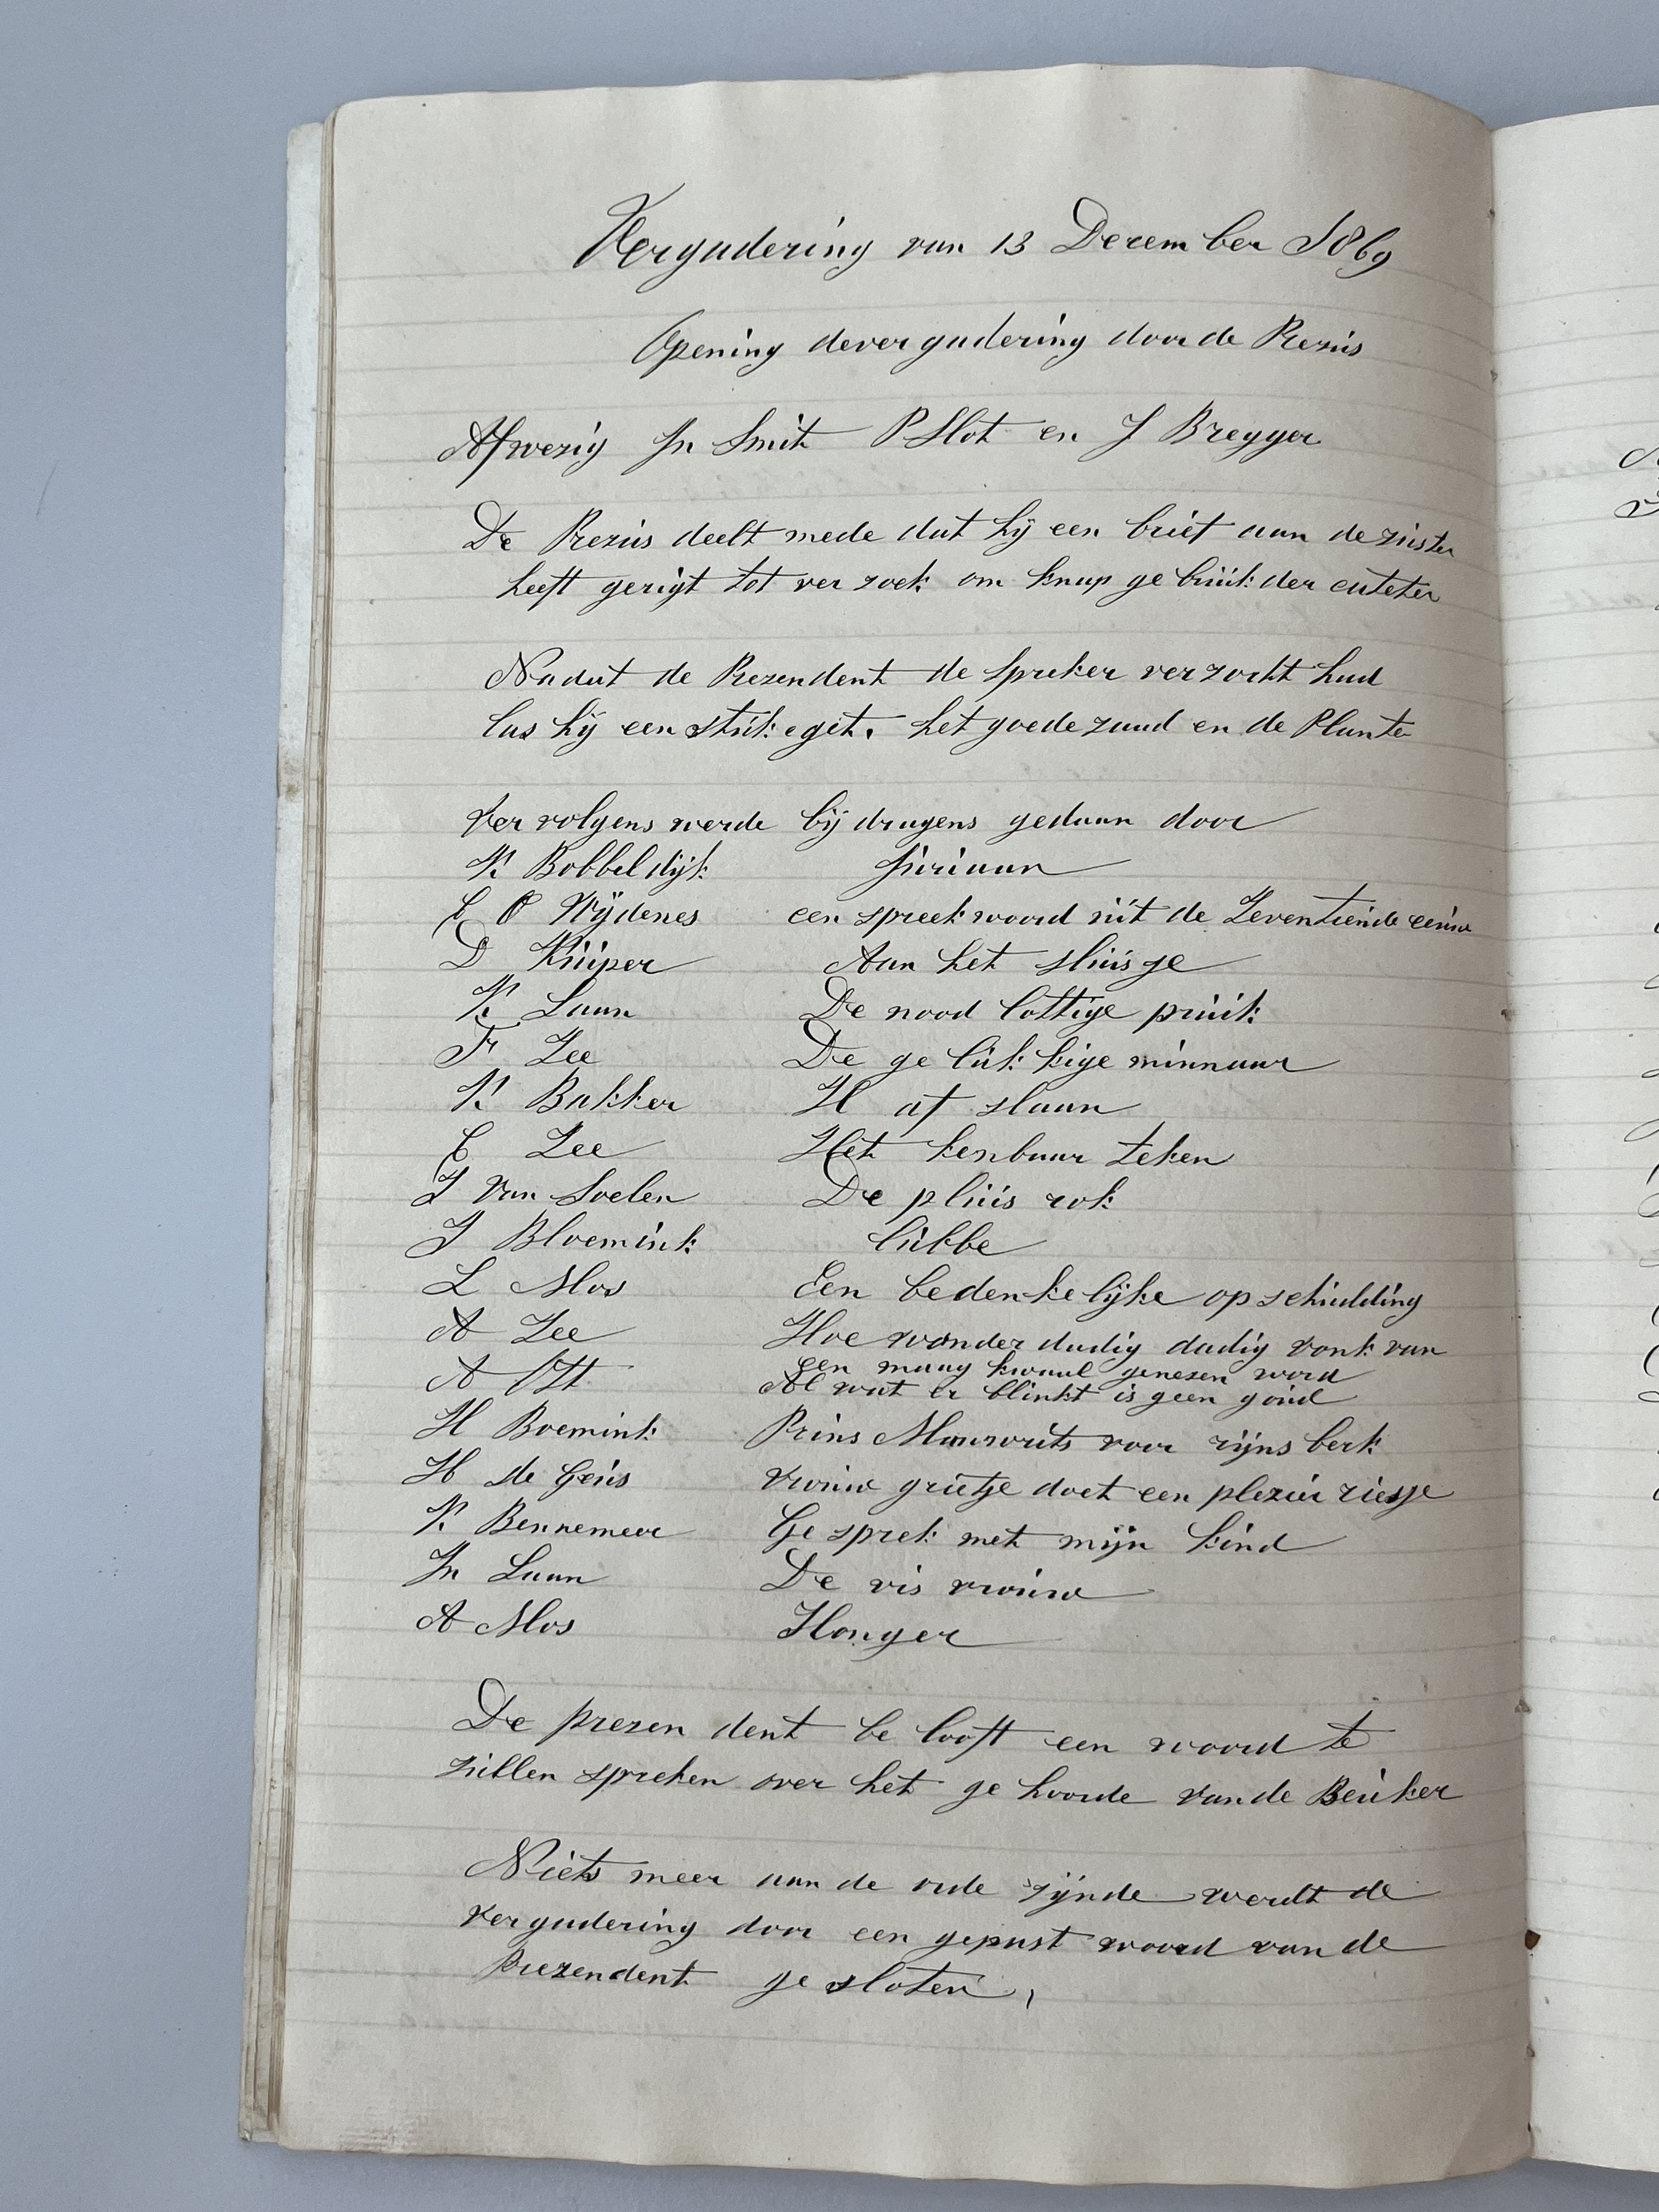 Vergadering van 13 December 1869
Opening dever gadering door de Prezus
Afwezig Jn Smit P Slot en J Bregger
De Prezus deelt mede dat hij een brief aan de zuster
heeft gerigt tot ver zoek om knap ge bruik der
Nadat de Prezendent de Spreker verzocht had
las hij een stuk eget. het goede zaad en de Plante
Ver volgens werde bij dragens gedaan door
K Bobbeldijk Juriaan
C O Wijdenes een spreek woord uit de Zeventiende eeuw
D Kuiper Aan het sluis ge
K Laan De nood lottige pruik
Fr Zee De ge luk kige minnaar
K Bakker H af slaan
C Zee Het kenbaar teken
J Van Soelen De pluis rok
J Bloemink lubbe
L Mos Een bedenkelijke op schudding
A Zee Hoe wonder dadig dadig vonk van
een maag kwaal genezen word
A Ott Al wat er blinkt is geen goud
H Boemink Prins Mauwrits voor rijns berk
H de Geus Vrouw grietje doet een plezier riesje
K Bennemeer Ge sprek met mijn kind
Jn Laan De vis vrouw
A Mos Honger
De prezen dent be looft een woord te
zullen spreken over het ge hoorde van de Beuker
Niets meer aan de orde zijnde werdt de
vergadering door een gepast woord van de
Prezendent ge sloten,